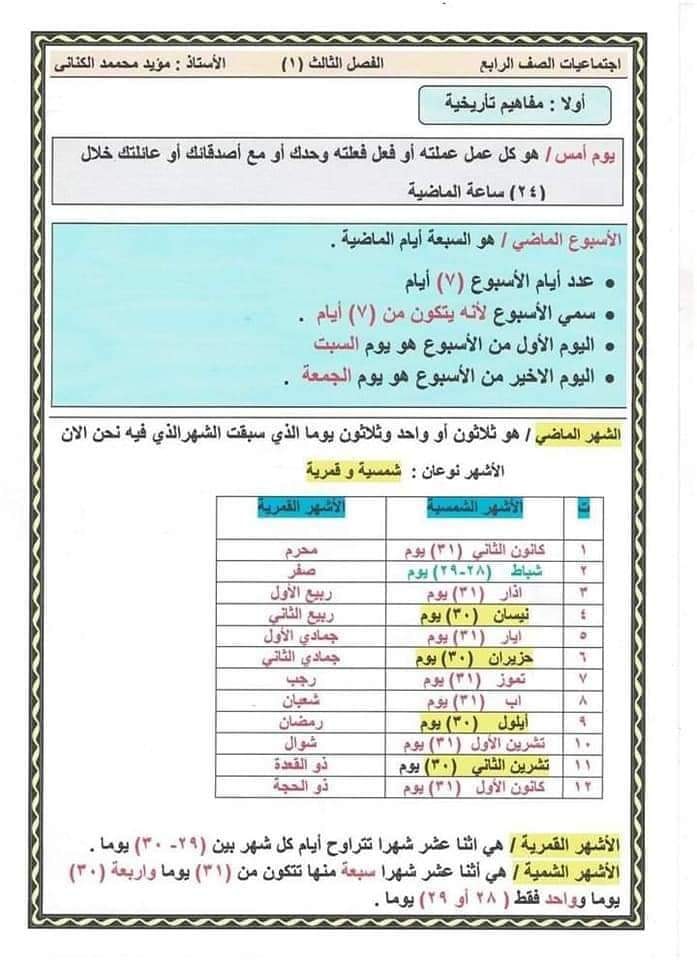 اجتماعيات الصف الرابع الفصل الثالث (١) الأستاذ : مؤيد محممد الكناني
أولا : مفاهيم تأريخية
يوم أمس / هو كل عمل عملته أو فعل فعلته وحدك أو مع أصدقائك أو عائلتك خلال
(٢٤) ساعة الماضية
الأسبوع الماضي / هو السبعة أيام الماضية .
• عدد أيام الأسبوع (٧) أيام
• سمي الأسبوع لأنه يتكون من (٧) أيام .
• اليوم الأول من الأسبوع هو يوم السبت
• اليوم الاخير من الأسبوع هو يوم الجمعة .
الشهر الماضي / هو ثلاثون أو واحد وثلاثون يوما الذي سبقت الشهرالذي فيه نحن الان
الأشهر نوعان : شمسية و قمرية
ت الأشهر الشمسية الأشهر القمرية
١ كانون الثاني (٣١) يوم محرم
٢ شباط (٢٨-٢٩) يوم صفر
٣ اذار (٣١) يوم ربيع الأول
٤ نيسان (٣٠) يوم ربيع الثاني
٥ ايار (٣١) يوم جمادي الأول
٦ حزيران (٣٠) يوم جمادي الثاني
٧ تموز (٣١) يوم رجب
٨ اب (٣١) يوم شعبان
٩ أيلول (٣٠) يوم رمضان
١٠ تشرين الأول (٣١) يوم شوال
١١ تشرين الثاني (٣٠) يوم ذو القعدة
١٢ كانون الأول (٣١) يوم ذو الحجة
الأشهر القمرية / هي اثنا عشر شهرا تتراوح أيام كل شهر بين (٢٩- ٣٠) يوما .
الأشهر الشمية / هي أثنا عشر شهرا سبعة منها تتكون من (٣١) يوما واربعة (٣٠)
يوما وواحد فقط ( ٢٨ أو ٢٩) يوما .